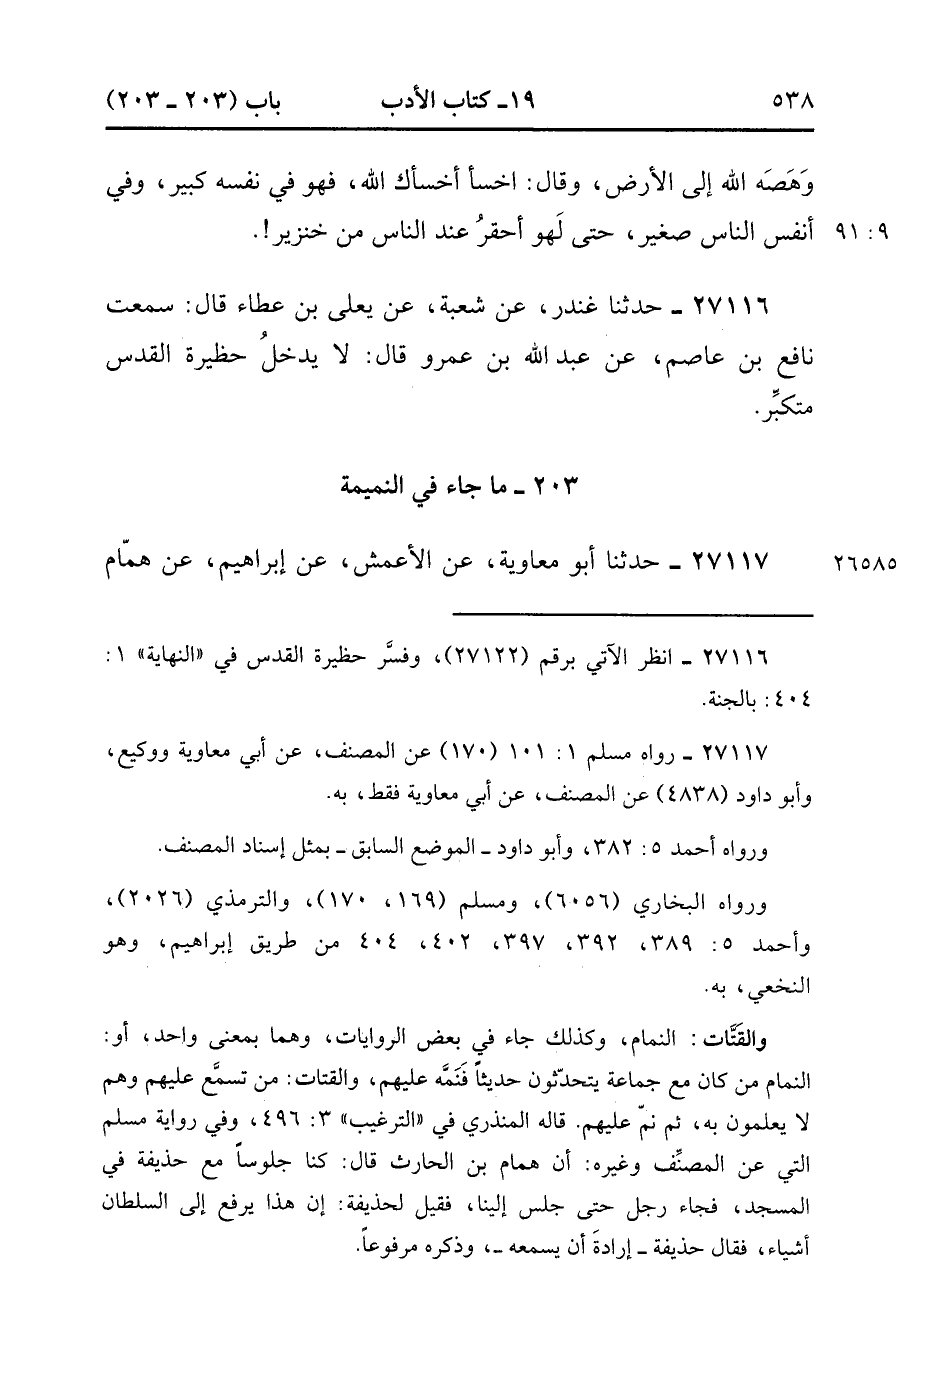 ٥٣٨ ١٩ـ كتاب الأدب باب (٢٠٣ ـ ٢٠٣)
وَهَصَه الله إلى الأرض، وقال: اخسأ أخسأك الله، فهو في نفسه كبير، وفي
٩: ٩١ أنفس الناس صغير، حتى لَهو أحقرُ عند الناس من خنزير!.
٢٧١١٦ ـ حدثنا غندر، عن شعبة، عن يعلى بن عطاء قال: سمعت
نافع بن عاصم، عن عبد الله بن عمرو قال: لا يدخلُ حظيرة القدس
متكبِّر.
٢٠٣ ـ ما جاء في النميمة
٢٦٥٨٥ ٢٧١١٧ ـ حدثنا أبو معاوية، عن الأعمش، عن إبراهيم، عن همّام
٢٧١١٦ ـ انظر الآتي برقم (٢٧١٢٢)، وفسَّر حظيرة القدس في «النهاية» ١:
٤٠٤: بالجنة.
٢٧١١٧ ـ رواه مسلم ١: ١٠١ (١٧٠) عن المصنف، عن أبي معاوية ووكيع،
وأبو داود (٤٨٣٨) عن المصنف، عن أبي معاوية فقط، به.
ورواه أحمد ٥: ٣٨٢، وأبو داود ـ الموضع السابق ـ بمثل إسناد المصنف.
ورواه البخاري (٦٠٥٦)، ومسلم (١٦٩، ١٧٠)، والترمذي (٢٠٢٦)،
وأحمد ٥: ٣٨٩، ٣٩٢، ٣٩٧، ٤٠٢، ٤٠٤ من طريق إبراهيم، وهو
النخعي، به.
والقَتَّات: النمام، وكذلك جاء في بعض الروايات، وهما بمعنى واحد، أو:
النمام من كان مع جماعة يتحدّثون حديثاً فَنَمَّه عليهم، والقتات: من تسمَّع عليهم وهم
لا يعلمون به، ثم نمّ عليهم. قاله المنذري في «الترغيب» ٣: ٤٩٦، وفي رواية مسلم
التي عن المصنِّف وغيره: أن همام بن الحارث قال: كنا جلوساً مع حذيفة في
المسجد، فجاء رجل حتى جلس إلينا، فقيل لحذيفة: إن هذا يرفع إلى السلطان
أشياء، فقال حذيفة ـ إرادةَ أن يسمعه ـ، وذكره مرفوعاً.